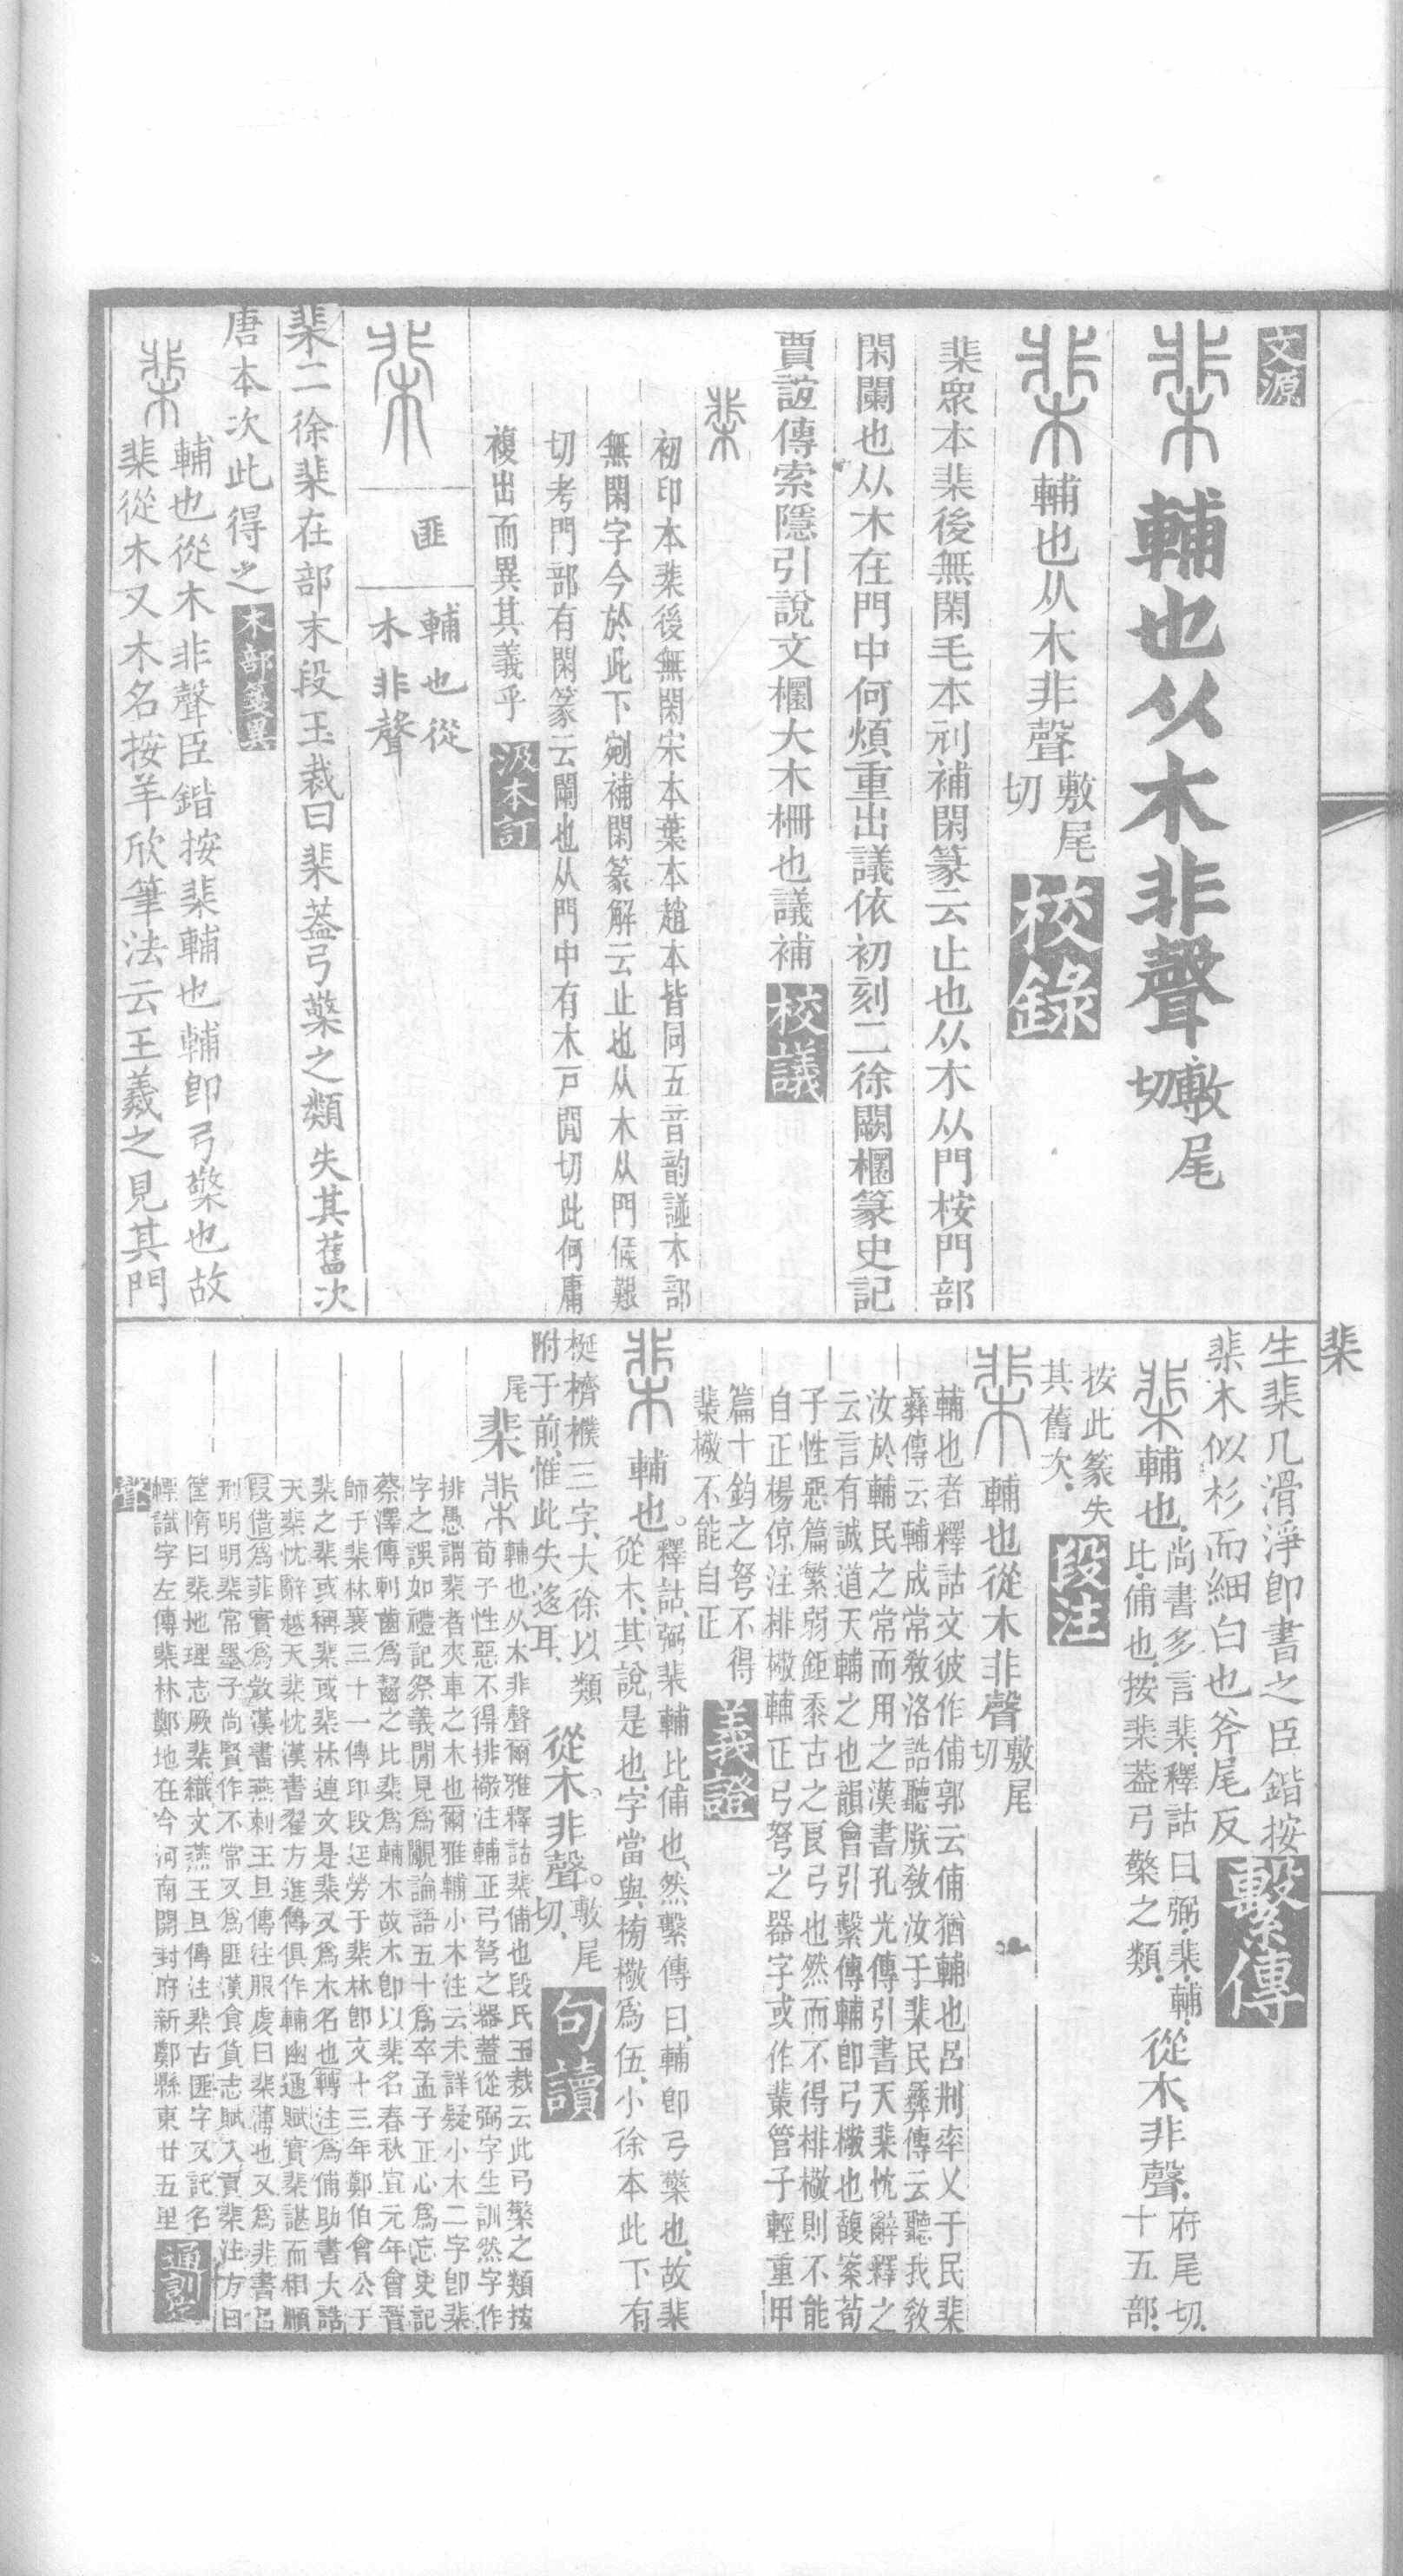 文源
棐 輔也从木非聲敷尾切
棐 輔也从木非聲敷尾切 校錄
棐衆本棐後無閑毛本刓補閑篆云止也从木从門桉門部
閑闌也从木在門中何煩重出議依初刻二徐闕櫮篆史記
賈誼傳索隱引說文櫮大木柵也議補 校議
棐
初印本棐後無閑宋本葉本趙本皆同五音韵譜木部
無閑字今於此下剜補閑篆解云止也从木从門候艱
切考門部有閑篆云闌也从門中有木戸閒切此何庸
複出而異其義乎 汲本訂
棐 匪 輔也從
木非聲
棐二徐棐在部末段玉裁曰棐葢弓檠之類失其舊次
唐本次此得之 木部箋異
棐 輔也從木非聲臣鍇按棐輔也輔卽弓檠也故
棐從木又木名按羊欣筆法云王羲之見其門
棐
生棐几滑淨卽書之臣鍇按
棐木似杉而細白也斧尾反 繫傳
棐 輔也尚書多言棐釋詁曰弼棐輔
比俌也按棐葢弓檠之類 從木非聲府尾切十五部
按此篆失
其舊次 段注
棐 輔也從木非聲敷尾切
輔也者釋詁文彼作俌郭云俌猶輔也呂刑率乂于民棐
彝傳云輔成常敎洛誥聽朕敎汝于棐民彝傳云聽我敎
汝於輔民之常而用之漢書孔光傳引書天棐忱辭釋之
云言有誠道天輔之也韻會引繫傳輔卽弓檠也馥案荀
子性惡篇繁弱鉅黍古之良弓也然而不得排檠則不能
自正楊倞注排檠輔正弓弩之器字或作輩管子輕重甲
篇十鈞之弩不得
棐檠不能自正 義證
棐 輔也。釋詁弼棐輔比俌也然繫傳曰輔卽弓檠也故棐
從木其說是也字當與榜檠爲伍小徐本此下有
梴櫅樸三字大徐以類
附于前惟此失迻耳 從木非聲。敷尾切 句讀
尾
棐
棐 輔也从木非聲爾雅釋詁棐俌也段氏玉裁云此弓檠之類按
荀子性惡不得排檠注輔正弓弩之器蓋從弼字生訓然字作
排愚謂棐者夾車之木也爾雅輔小木注云未詳疑小木二字卽棐
字之誤如禮記祭義閒見爲覸論語五十爲卒孟子正心爲忘史記
蔡澤傳刺齒爲齧之比棐爲輔木故木卽以棐名春秋宣元年會晉
師于棐林襄三十一傳印段迋勞于棐林卽文十三年鄭伯會公于
棐之棐或稱棐或棐林連文是棐又爲木名也轉注爲俌助書大誥
天棐忱辭越天棐忱漢書翟方進傳俱作輔幽通賦實棐諶而相順
叚借爲菲實爲㪚漢書燕刺王旦傳往服虔曰棐薄也又爲非書呂
刑明明棐常墨子尚賢作不常又爲匪漢食貨志賦入貢棐注方曰
筐惰曰棐地理志厥棐織文燕王旦傳注棐古匪字又託名
幖識字左傳棐林鄭地在今河南開封府新鄭縣東廿五里 通訓定
聲